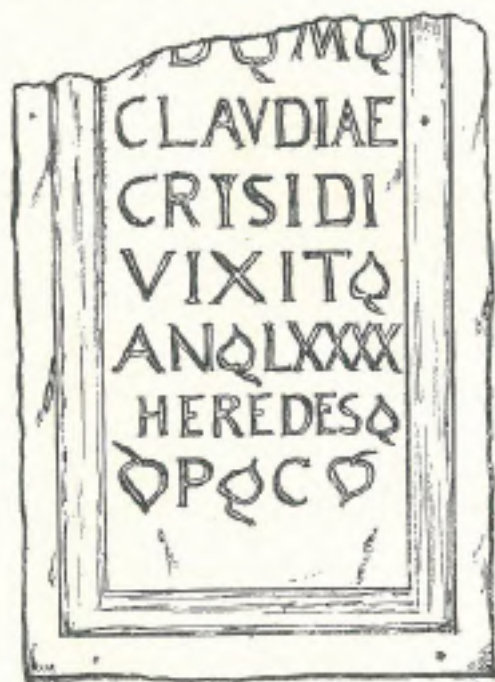 D M
CLAVDIAE
CRYSIDI
VIXIT
AN LXXXX
HEREDES
P C